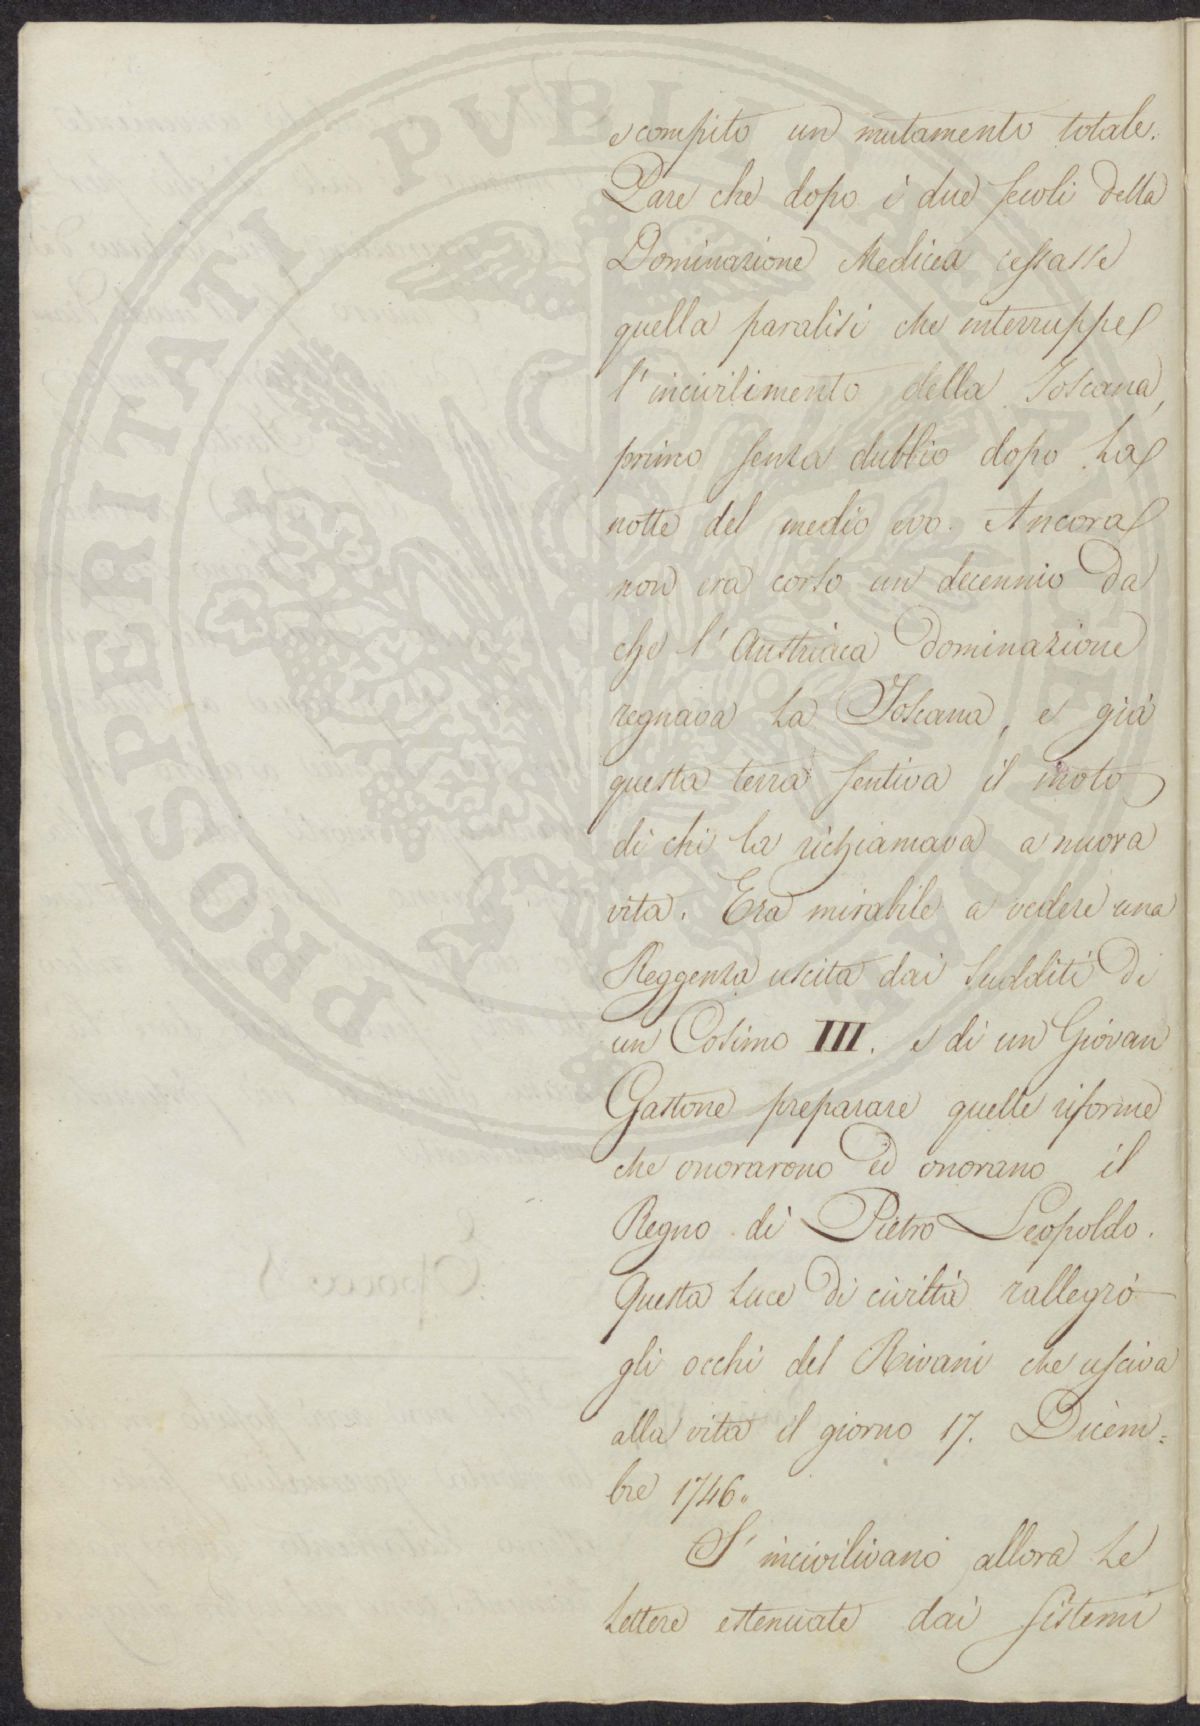 e compito un mutamento totale.
Pare che dopo i due secoli della
Dominazione Medicea cessasse
quella paralisi che interruppe
l'incivilimento della Toscana,
primo senza dubbio dopo la
notte del medio evo. Ancora
non era corso un decennio da
che l'Austriaca dominazione
regnava la Toscana, e già
questa terra sentiva il moto
di chi la richiamava a nuova
vita. Era mirabile a vedere una
Reggenza uscita dai sudditi di
un Cosimo III. e di un Giovan
Gastone preparare quelle riforme
che onorarono ed onorano il
Regno di Pietro Leopoldo.
Questa luce di civiltà rallegrò
gli occhi del Rivani che usciva
alla vita il giorno 17. Dicem=
bre 1746.
S'incivilivano allora le
lettere estenuate dai sistemi
PROSPERITATI PUBLICAE AUGENDAE